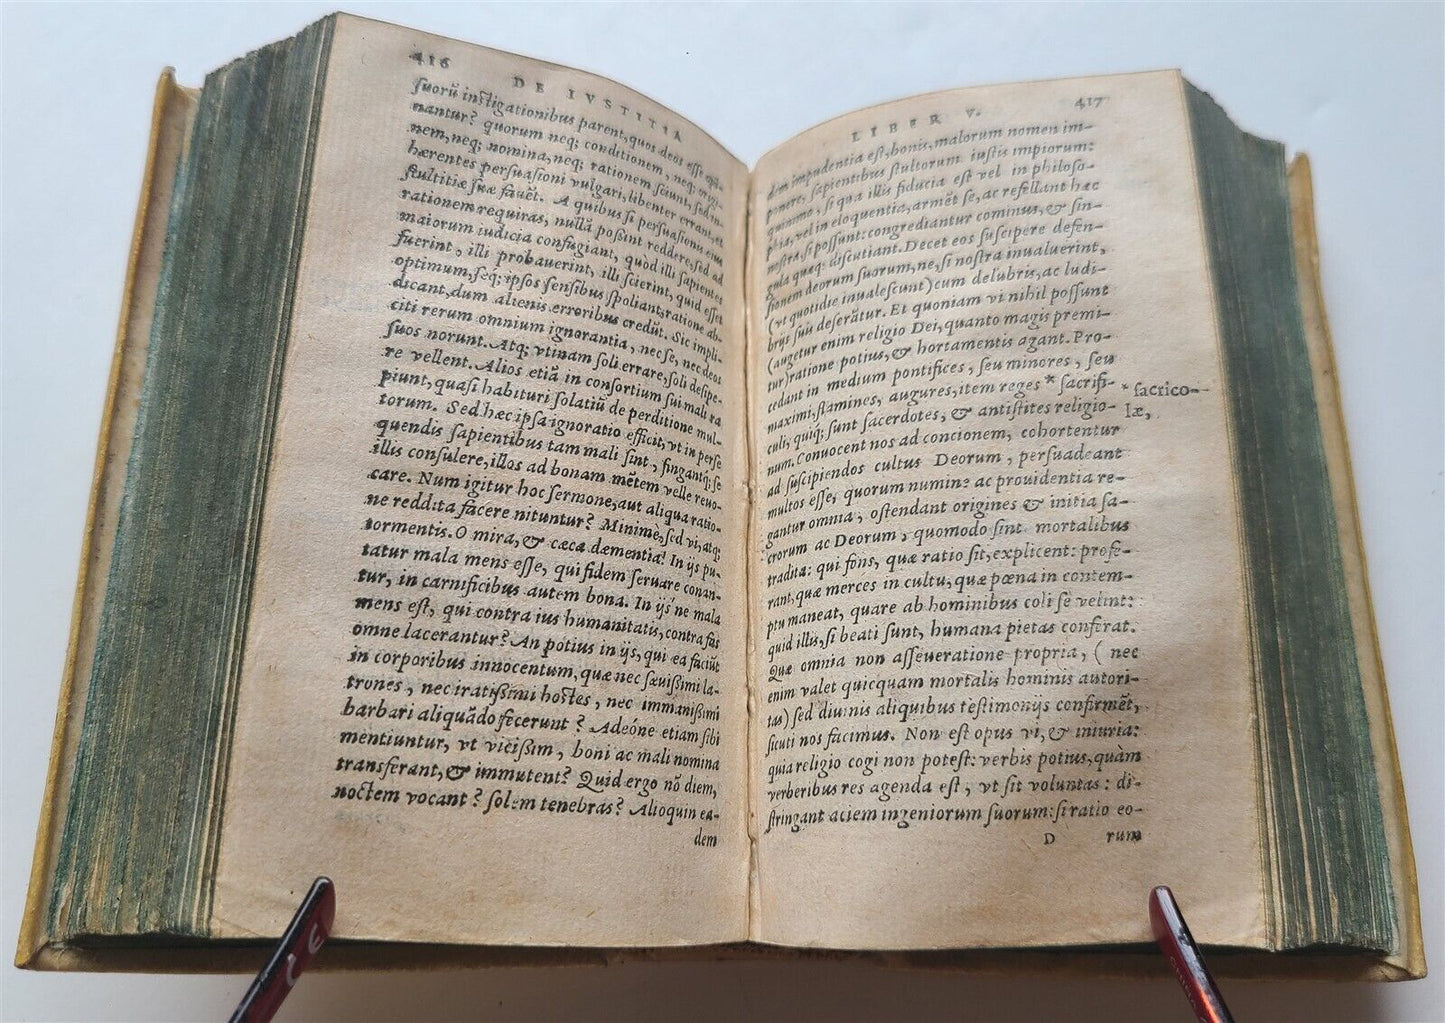 416
DE IVSTITIA
ſuorū inſtigationibus parent, quos deos eſſe opi-
nantur? quorum neq; conditionem, neq; origi-
nem, neq; nomina, neq; rationem ſciunt, ſed in-
hærentes perſuaſioni vulgari, libenter errant, et
ſtultitiæ ſuæ fauēt. A quibus ſi perſuaſionis eius
rationem requiras, nullā poßint reddere, ſed ad
maiorum iudicia confugiant, quòd illi ſapientes
fuerint, illi probauerint, illi ſcierint, quid eſſet
optimum, ſeq; ipſos ſenſibus ſpoliant, ratione ab-
dicant, dum alienis erroribus credūt. Sic impli-
citi rerum omnium ignorantia, nec ſe, nec deos
ſuos norunt. Atq; vtinam ſoli errare, ſoli deſipe-
re vellent. Alios etiā in conſortium ſui mali ra
piunt, quaſi habituri ſolatiū de perditione mul-
torum. Sed hæc ipſa ignoratio efficit, vt in perſe
quendis ſapientibus tam mali ſint, fingantq; ſe
illis conſulere, illos ad bonam mētem velle reuo-
care. Num igitur hoc ſermone, aut aliqua ratio-
ne reddita facere nituntur? Minimè, ſed vi, atq;
tormentis. O mira, & cæca dæmentia! In ijs pu-
tatur mala mens eſſe, qui fidem ſeruare conan-
tur, in carnificibus autem bona. In ijs ne mala
mens eſt, qui contra ius humanitatis, contra fas
omne lacerantur? An potius in ijs, qui ea faciūt
in corporibus innocentum, quæ nec ſæuißimi la-
trones, nec iratißimi hoſtes, nec immanißimi
barbari aliquādo fecerunt? Adeóne etiam ſibi
mentiuntur, vt vicißim, boni ac mali nomina
transferant, & immutent? Quid ergo nō diem,
noctem vocant? ſolem tenebras? Alioquin ea-
dem
LIBER V.
417
dem impudentia eſt, bonis, malorum nomen im-
ponere, ſapientibus ſtultorum iuſtis impiorum:
quinimo, ſi qua illis fiducia eſt vel in philoſo-
phia, vel in eloquentia, armēt ſe, ac refellant hæc
noſtra, ſi poſſunt: congrediantur cominus, & ſin-
gula quæq; diſcutiant. Decet eos ſuſcipere defen-
ſionem deorum ſuorum, ne, ſi noſtra inualuerint,
(vt quotidie inualeſcunt) cum delubris, ac ludi-
brijs ſuis deſerātur. Et quoniam vi nihil poſſunt
(augetur enim religio Dei, quanto magis premi-
tur) ratione potius, & hortamentis agant. Pro-
cedant in medium pontifices, ſeu minores, ſeu
maximi, flamines, augures, item reges * ſacrifi-
culi, quiq; ſunt ſacerdotes, & antiſtites religio-
num. Conuocent nos ad concionem, cohortentur
ad ſuſcipiendos cultus Deorum, perſuadeant
multos eſſe, quorum numine ac prouidentia re-
gantur omnia, oſtendant origines & initia ſa-
crorum ac Deorum, quomodo ſint mortalibus
tradita: qui fons, quæ ratio ſit, explicent: profe-
rant, quæ merces in cultu, quæ pœna in contem-
ptu maneat, quare ab hominibus coli ſe velint:
quid illis, ſi beati ſunt, humana pietas conferat.
Quæ omnia non aſſeueratione propria, (nec
enim valet quicquam mortalis hominis autori-
tas) ſed diuinis aliquibus teſtimonijs confirmēt,
ſicuti nos facimus. Non eſt opus vi, & iniuria:
quia religio cogi non poteſt: verbis potius, quàm
verberibus res agenda eſt, vt ſit voluntas: di-
ſtringant aciem ingeniorum ſuorum: ſi ratio eo-
D rum
* ſacrico-
læ,